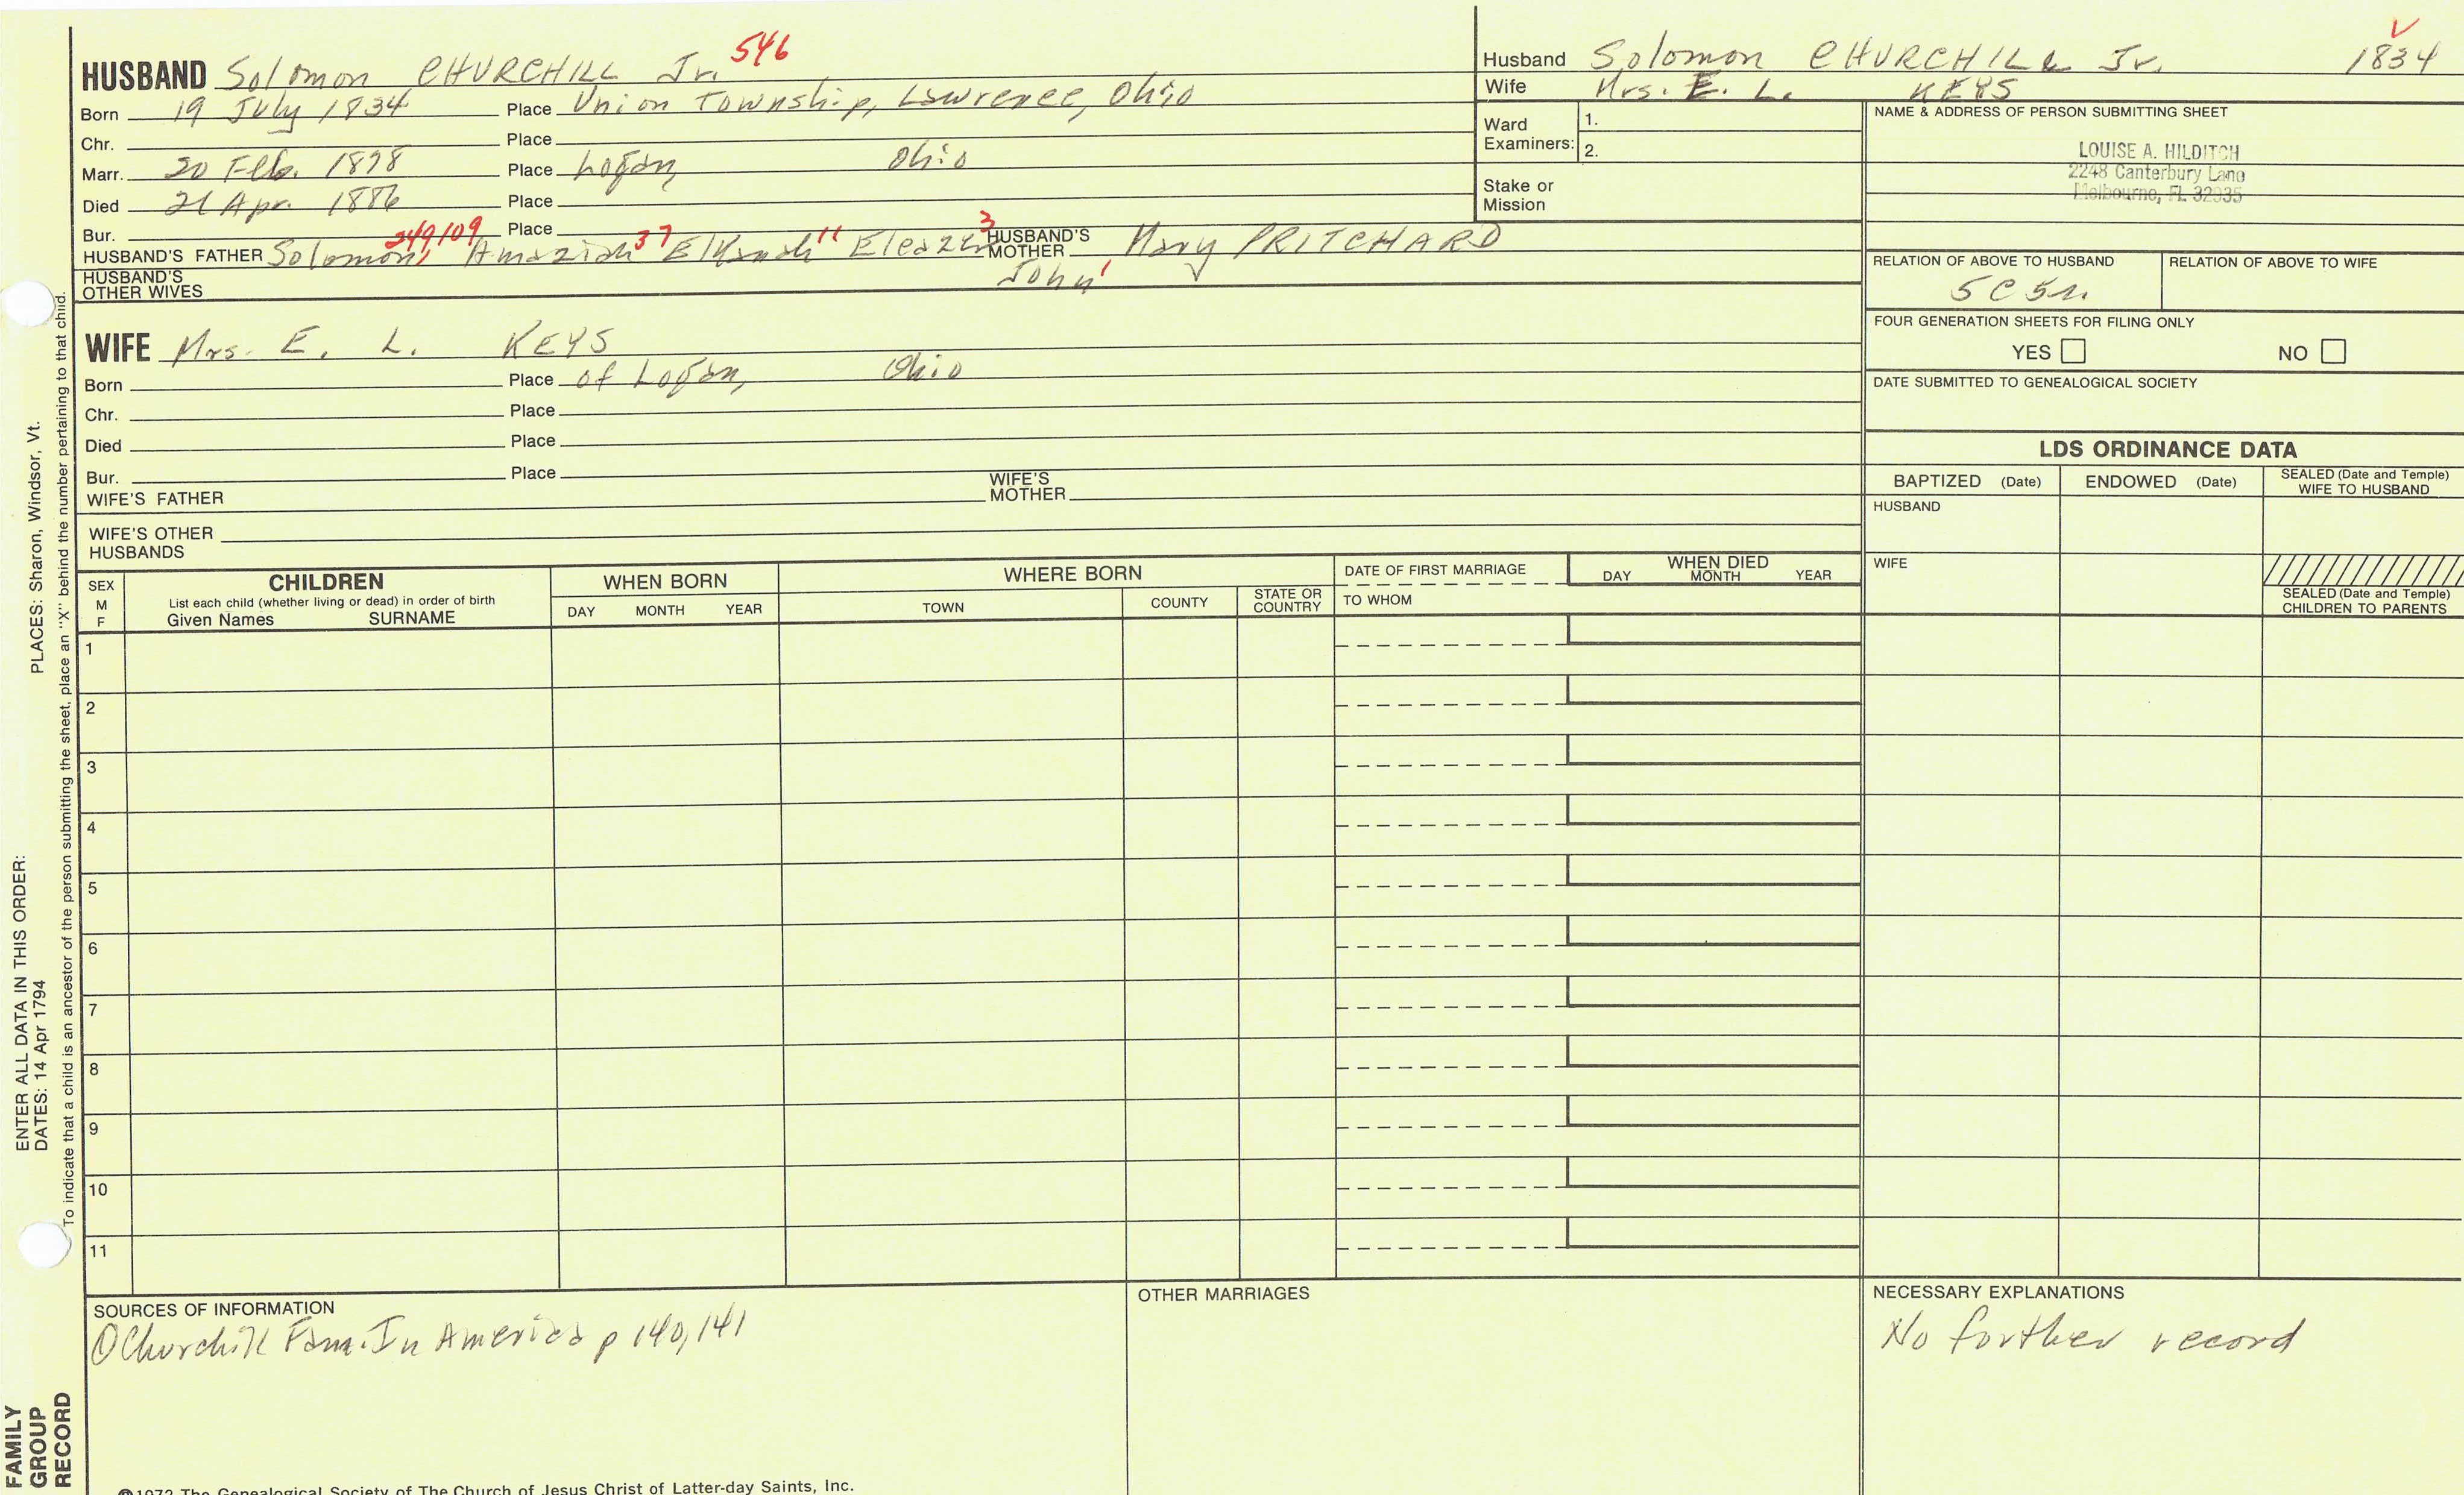 HUSBAND Solomon CHURCHILL Jr. 546
Born 19 July 1834 Place Union Township, Lawrence, Ohio
Chr. Place
Marr. 20 Feb. 1878 Place Logan, Ohio
Died 21 Apr. 1886 Place
Bur. Place
HUSBAND'S FATHER Solomon, 249,109 Amaziah 37 Elkanah 11 Eleazer 3 HUSBAND'S MOTHER Mary PRITCHARD
HUSBAND'S OTHER WIVES John 1
WIFE Mrs. E. L. KEYS
Born Place of Logan, Ohio
Chr. Place
Died Place
Bur. Place
WIFE'S FATHER WIFE'S MOTHER
WIFE'S OTHER HUSBANDS
Husband Solomon CHURCHILL Jr. 1834
Wife Mrs. E. L. KEYS
Ward Examiners: 1.
2.
Stake or Mission
NAME & ADDRESS OF PERSON SUBMITTING SHEET
LOUISE A. HILDITCH
2248 Canterbury Lane
Melbourne, FL 32935
RELATION OF ABOVE TO HUSBAND RELATION OF ABOVE TO WIFE
5C5r.
FOUR GENERATION SHEETS FOR FILING ONLY
YES NO
DATE SUBMITTED TO GENEALOGICAL SOCIETY
LDS ORDINANCE DATA
BAPTIZED (Date) ENDOWED (Date) SEALED (Date and Temple) WIFE TO HUSBAND
HUSBAND
WIFE
SEALED (Date and Temple) CHILDREN TO PARENTS
SEX M F
CHILDREN
List each child (whether living or dead) in order of birth
Given Names SURNAME
WHEN BORN
DAY MONTH YEAR
WHERE BORN
TOWN COUNTY STATE OR COUNTRY
DATE OF FIRST MARRIAGE
TO WHOM
WHEN DIED
DAY MONTH YEAR
1
2
3
4
5
6
7
8
9
10
11
SOURCES OF INFORMATION
① Churchill Fam. In America p 140, 141
OTHER MARRIAGES
NECESSARY EXPLANATIONS
No further record
©1972 The Genealogical Society of The Church of Jesus Christ of Latter-day Saints, Inc.
ENTER ALL DATA IN THIS ORDER:
DATES: 14 Apr 1794 PLACES: Sharon, Windsor, Vt.
To indicate that a child is an ancestor of the person submitting the sheet, place an "X" behind the number pertaining to that child.
FAMILY
GROUP
RECORD